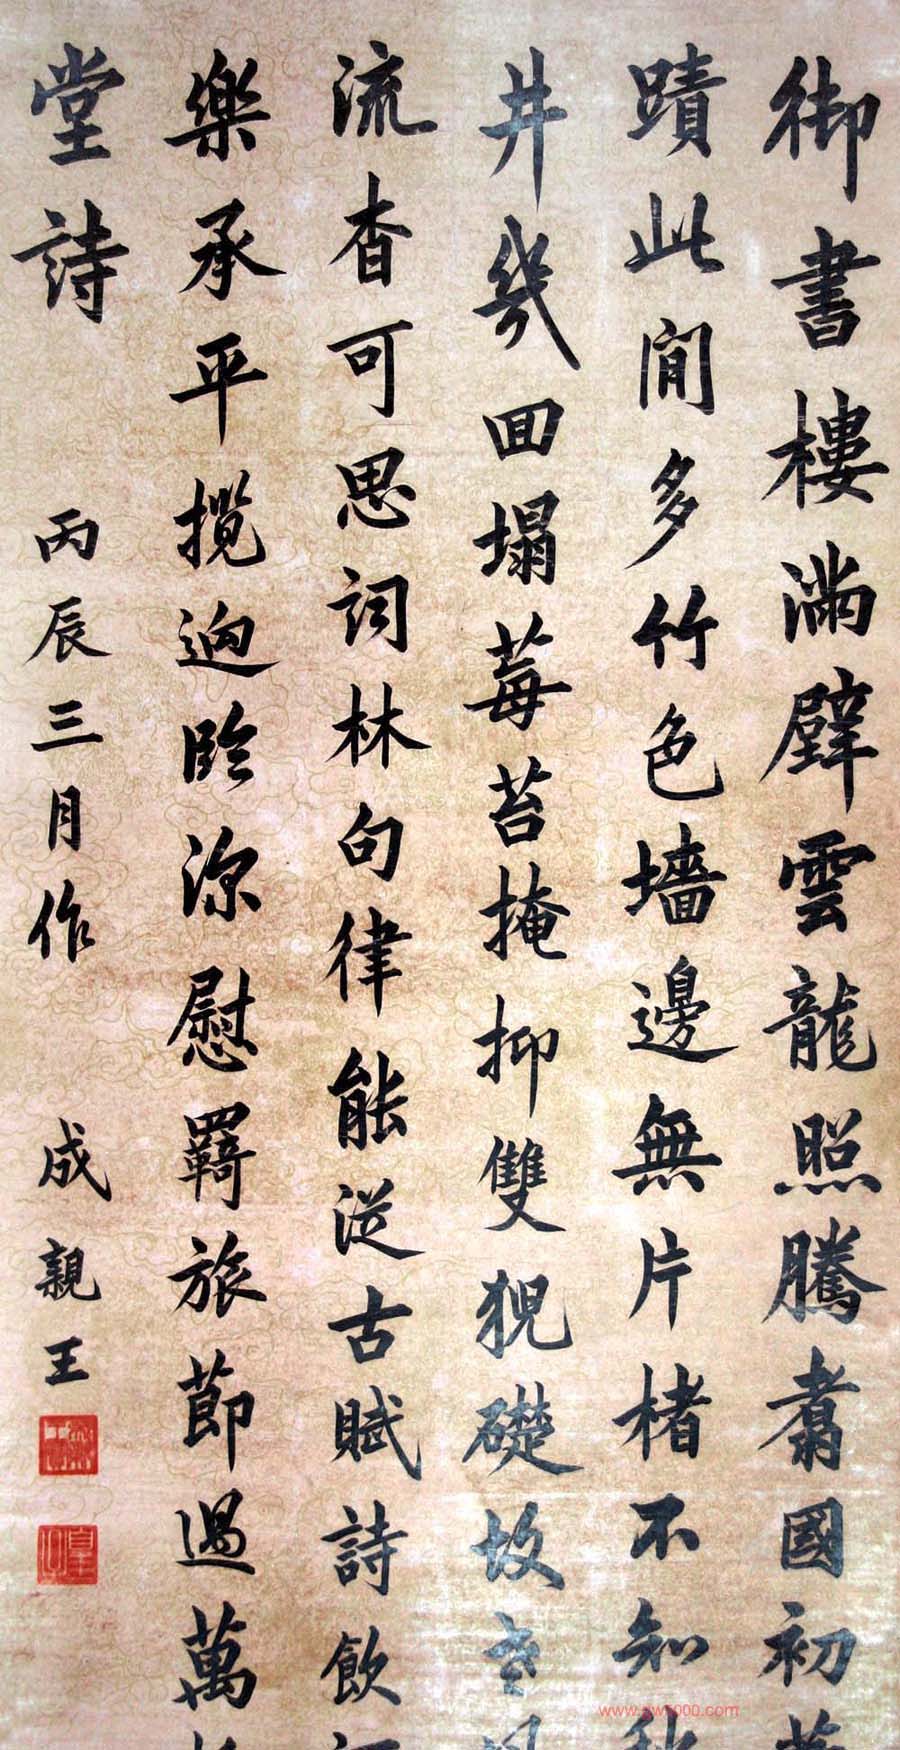 御書樓滿壁雲龍照騰翥國初
蹟此間多竹色墻邊無片楮不知
井幾回塌莓苔掩抑雙猊礎故
流杳可思詞林句律能從古賦詩飲
樂承平攬迥臨深慰羇旅節過萬
堂詩
丙辰三月作
成親王
www.gw1000.com